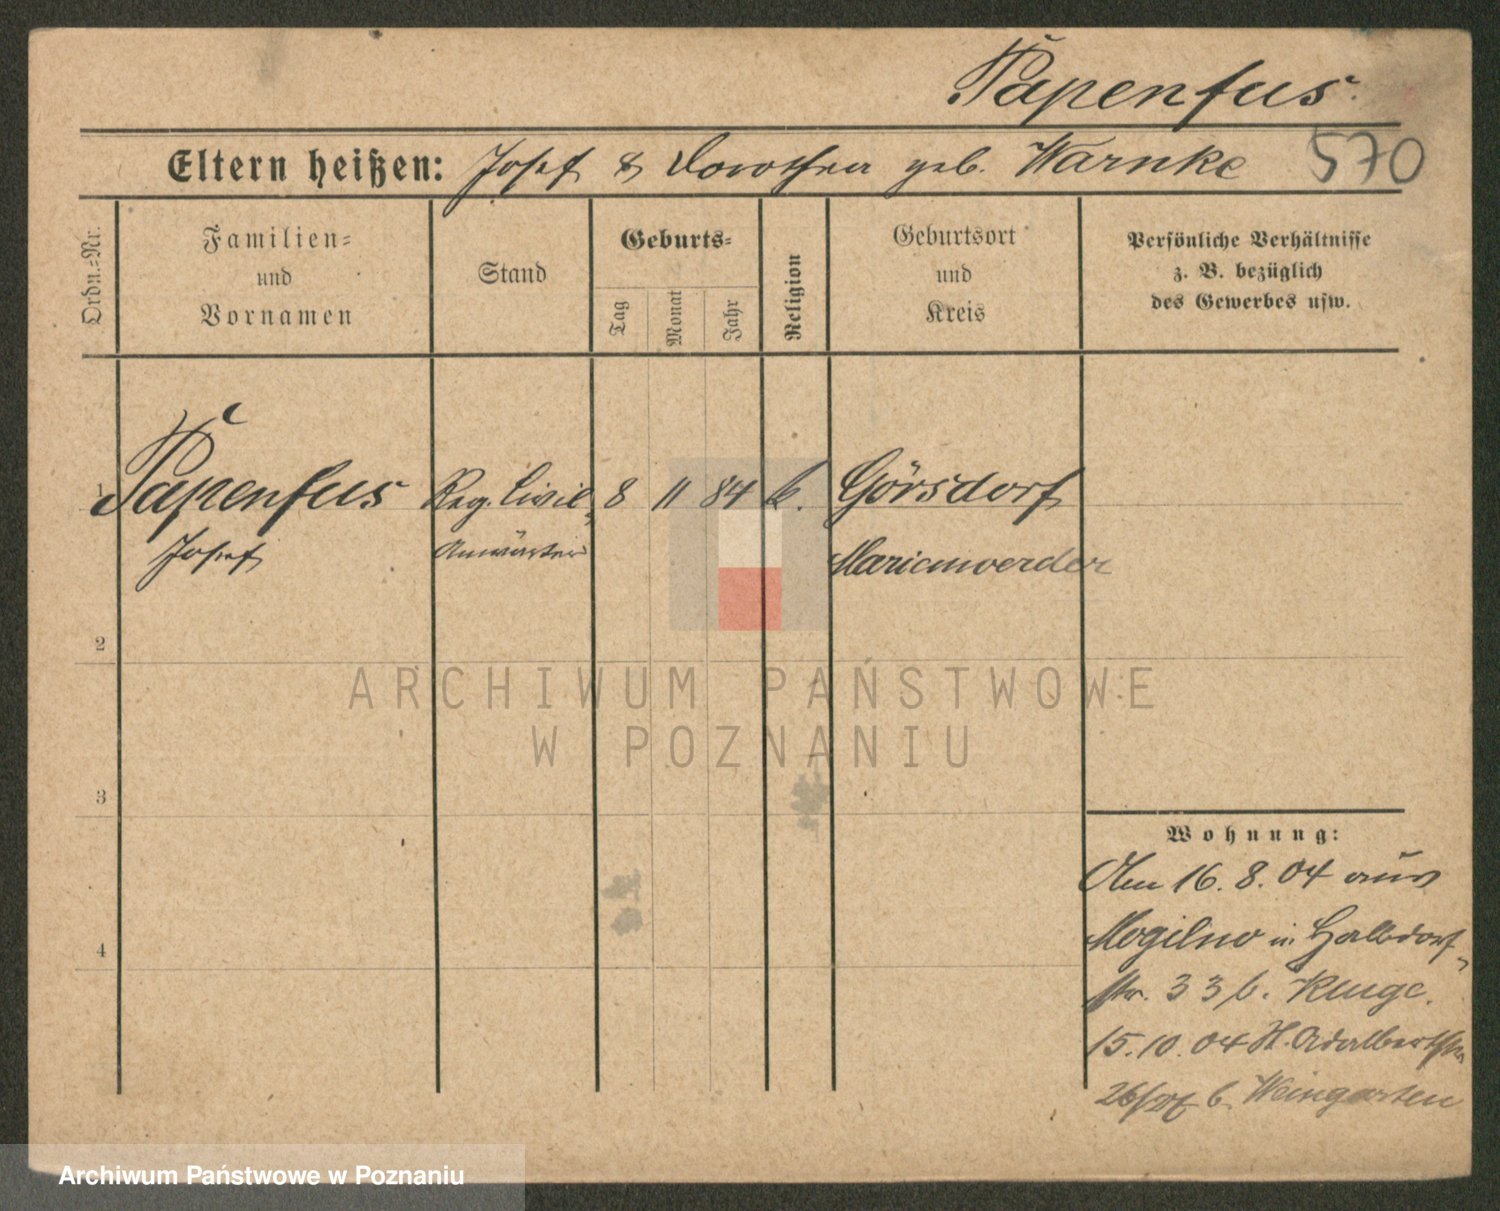 Papenfus.
Eltern heißen: Josef & Dorothea geb. Warnke 570
Ordn.-Nr.
Familien-
und
Vornamen
Stand
Geburts-
Tag
Monat
Jahr
Religion
Geburtsort
und
Kreis
Persönliche Verhältnisse
z. B. bezüglich
des Gewerbes usw.
1 Papenfus Reg. Civil- 8 11 84 k. Görsdorf
Josef Anwärter Marienwerder
2
ARCHIWUM PAŃSTWOWE
W POZNANIU
3
Wohnung:
Am 16. 8. 04 aus
Mogilno in Halbdorf-
str. 33 b. Kluge.
15. 10. 04 St. Adalbertstr.
4
26/27 b. Weingarten
Archiwum Państwowe w Poznaniu